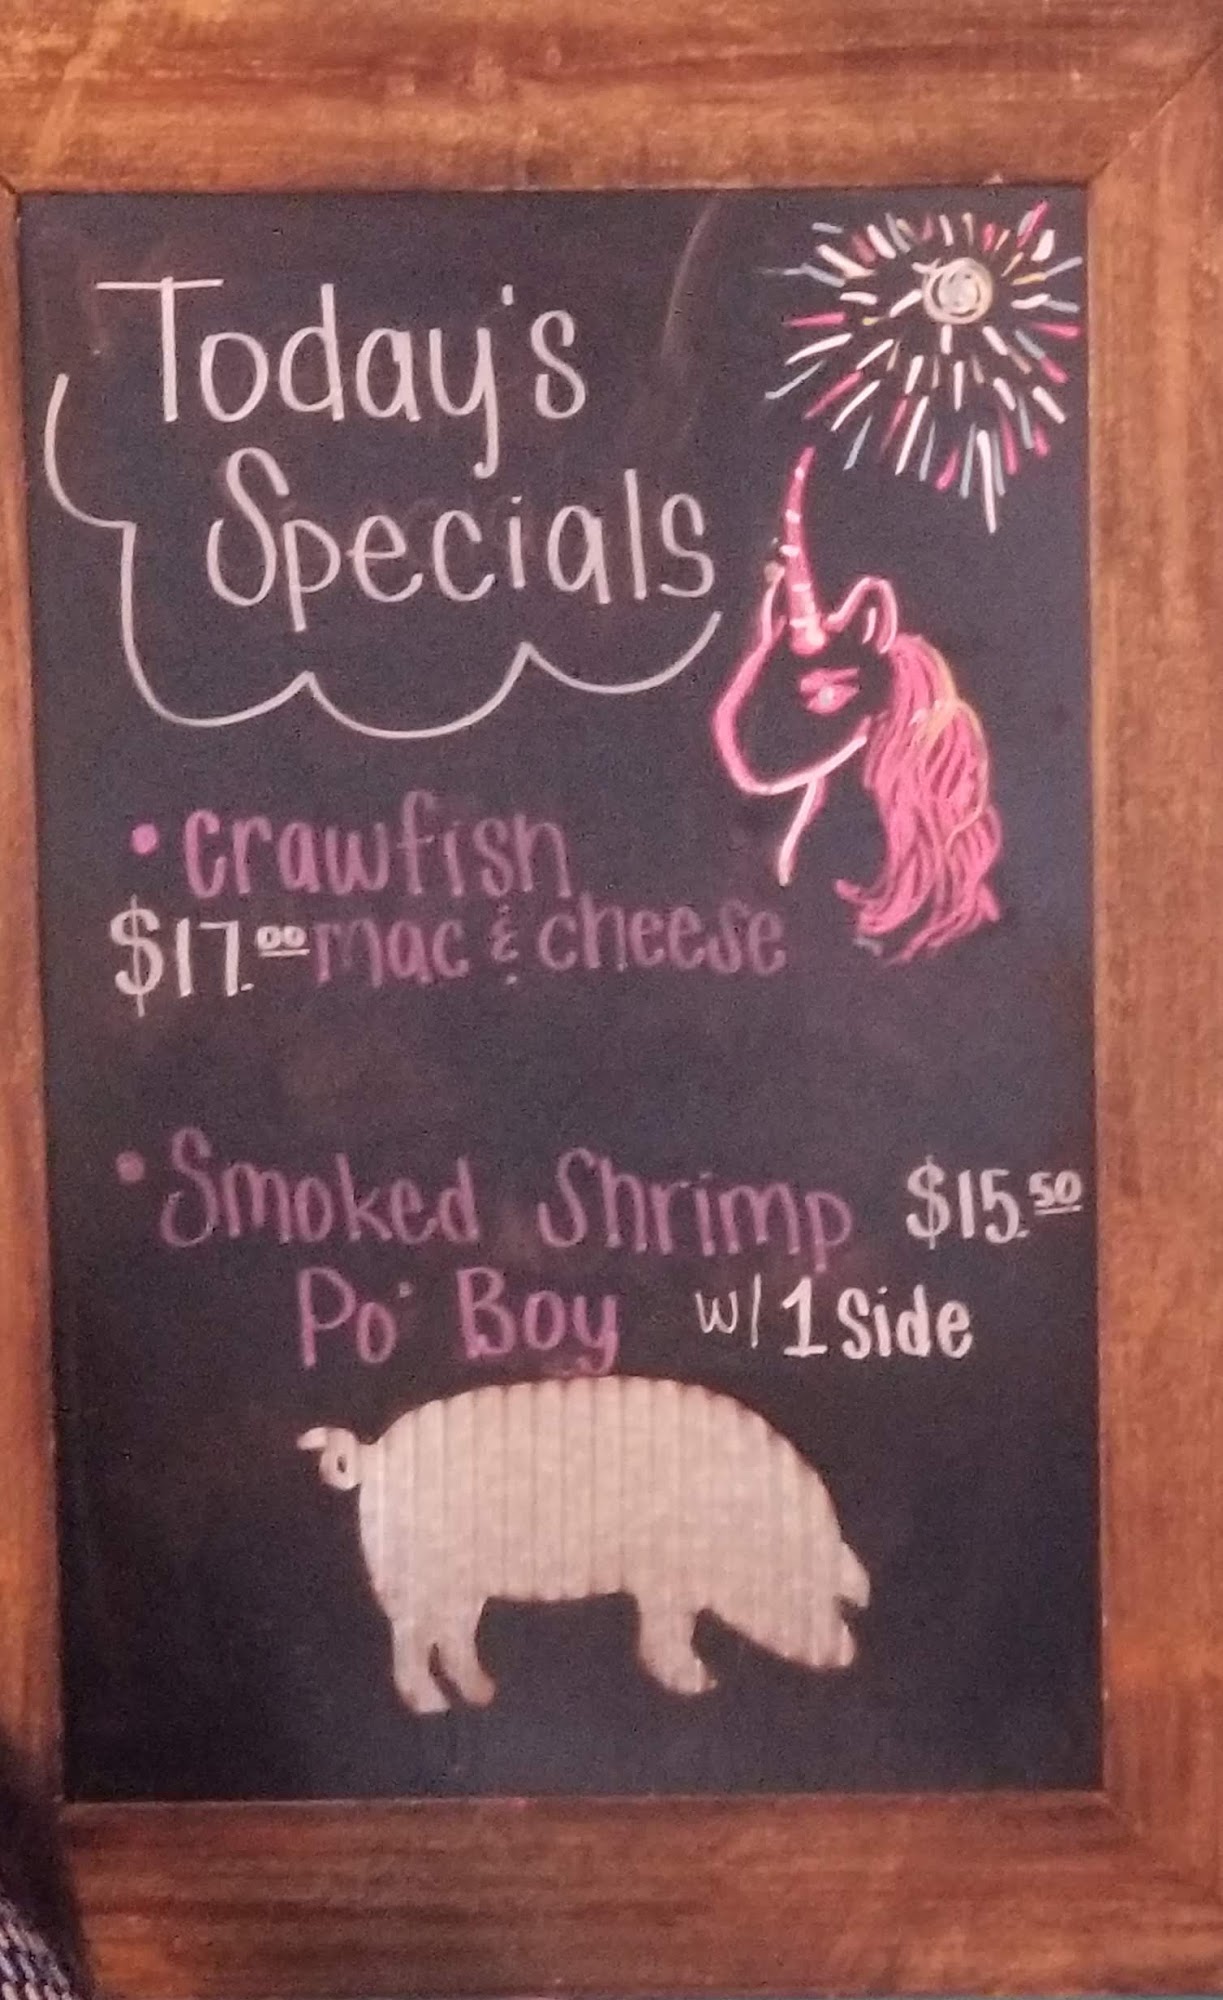 Today's
Specials
• crawfish
$17.00 mac & cheese
• Smoked Shrimp $15.50
Po' Boy w/ 1 side